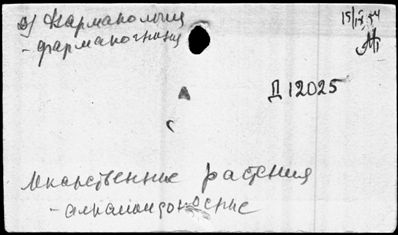 э/ Фармакология
- фармакогнозия
15/IX 54
А
Д 12025
с
Лекарственные растения
- алкалоидоносные